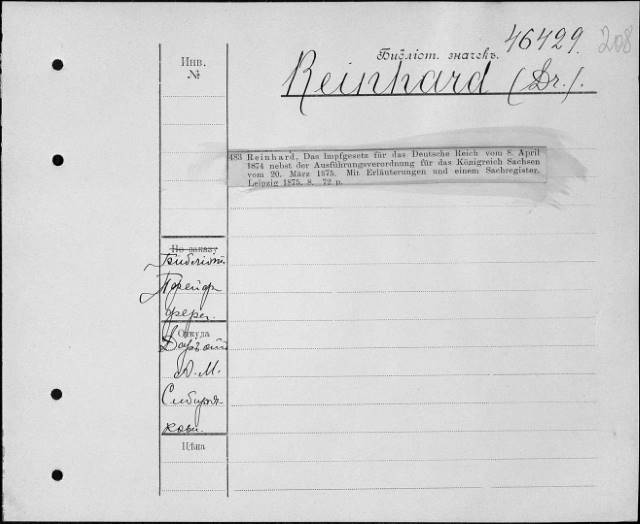 46429. 208
Библіот. значекъ.
Reinhard (Dr.).
Инв.
№
483 Reinhard, Das Impfgesetz für das Deutsche Reich vom 8. April
1874 nebst der Ausführungsverordnung für das Königreich Sachsen
vom 20. März 1875. Mit Erläuterungen und einem Sachregister.
Leipzig 1875. 8. 72 p.
По заказу
Библіот.
Откуда
Даръ отъ
А. М.
Сибиря-
кова.
Цѣна